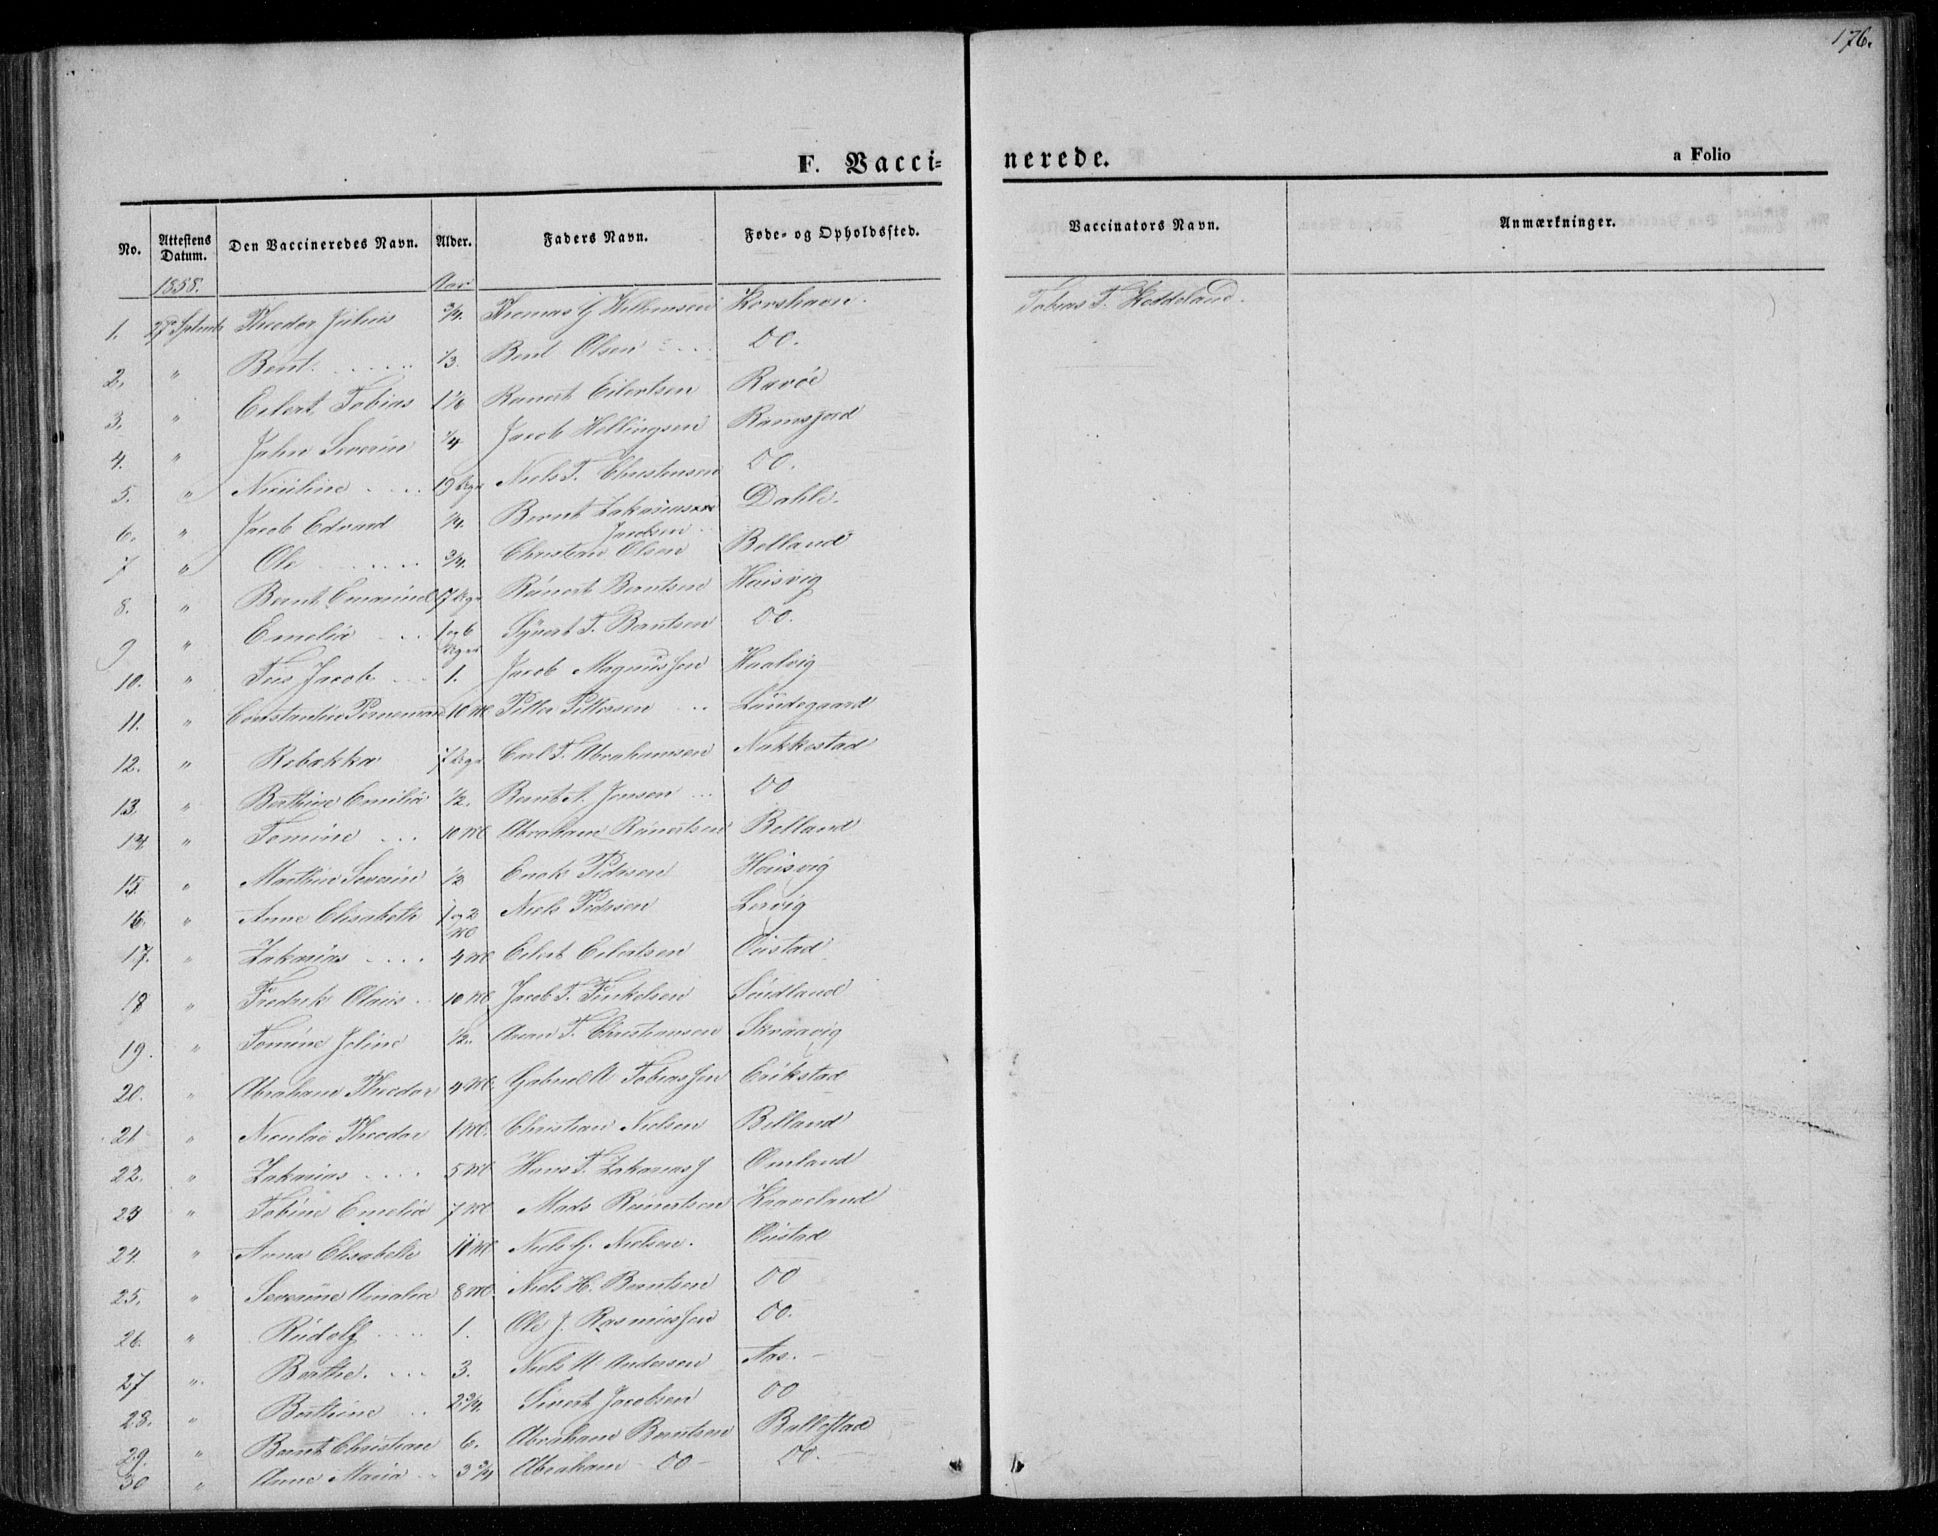 176.
F. Vacci=
nerede.
a Folio
No. Attestens Datum. Den Vaccineredes Navn. Alder. Faders Navn. Føde- og Opholdssted. Vaccinators Navn. Anmærkninger.
1858. Aar
1. 27 Septemb Theodor Julius 3/4. Thomas G Villumsen Korshavn. Tobias T. Hoddeland.
2. " Bent 1/3. Bent Olsen DO.
3. " Eilert Tobias 1 1/6 Reinert Eilertsen Ravøe
4. " Jahn Severin 1/4 Jacob Hellingsen Ramsfjord
5. " Nicoline 19 Uger Niels T. Christensen DO.
6. " Jacob Edvard 1/4. Bernt Zakariassen Jacobsen Dahle.
7 " Ole 3/4. Christian Olsen Belland
8. " Bernt Emanuel 17 Uger Reinert Berntsen Housvig
9 " Emelie 1 og 6 Uger Syvert T. Berntsen DO.
10. " Jacob 1. Jacob Magnussen Haalvig
11. " Constantine 10 M Petter Pettersen Lundegaard
12. " Rebækka 7 Uger Carl T. Abrahamsen Nakkestad
13. " Berthine Emilie 1/2. Bernt A. Jensen DO
14 " Tomine 10 M Abraham Reinertsen Belland
15. " Marthin Severin 1/2 Enok Pedersen Housvig
16. " Anne Elisabeth 1 og 2 M Niels Pedersen Lervig
17. " Zakarias 4 M Eilert Eilertsen Øistad
18 " Fredrik Olaus 10 M Jacob T. Tinkelsen Sundland
19. " Tomine Joline 1/2. Anan T. Christiansen Skraavig
20. " Abraham Theodor 4 M. Gabriel A Tobiassen Erikstad
21 " Nicolai Theodor 1 M. Christian Nielsen Belland
22. " Zakarias 5 M Hans T. Zakarias J Omland
23 " Tobine Emelie 7 M Mads Reinertsen Kaaveland
24. " Anna Elisabeth 11 M Niels G. Nielsen. Øistad
25. " Severine Amalie 8 M. Niels H. Berntsen DO
26. " Rudolf 1. Ole J. Rasmussen DO.
27 " Berthe. 3. Niels A Andersen Aas.
28. " Berthine 2 3/4. Sivert Jacobsen DO
29. " Bernt Christian 6. Abraham Berntsen Ballestad
30 " Anne Maria 3 3/4 Abraham DO DO.